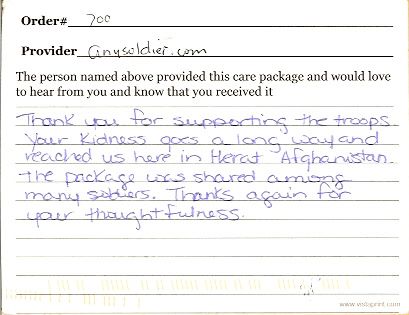 Order# 700
Provider anysoldier.com
The person named above provided this care package and would love
to hear from you and know that you received it
Thank you for supporting the troops
Your kidness goes a long way and
reached us here in Herat Afghanistan.
The package was shared among
many soldiers. Thanks again for
your thoughtfulness.
www.vistaprint.com